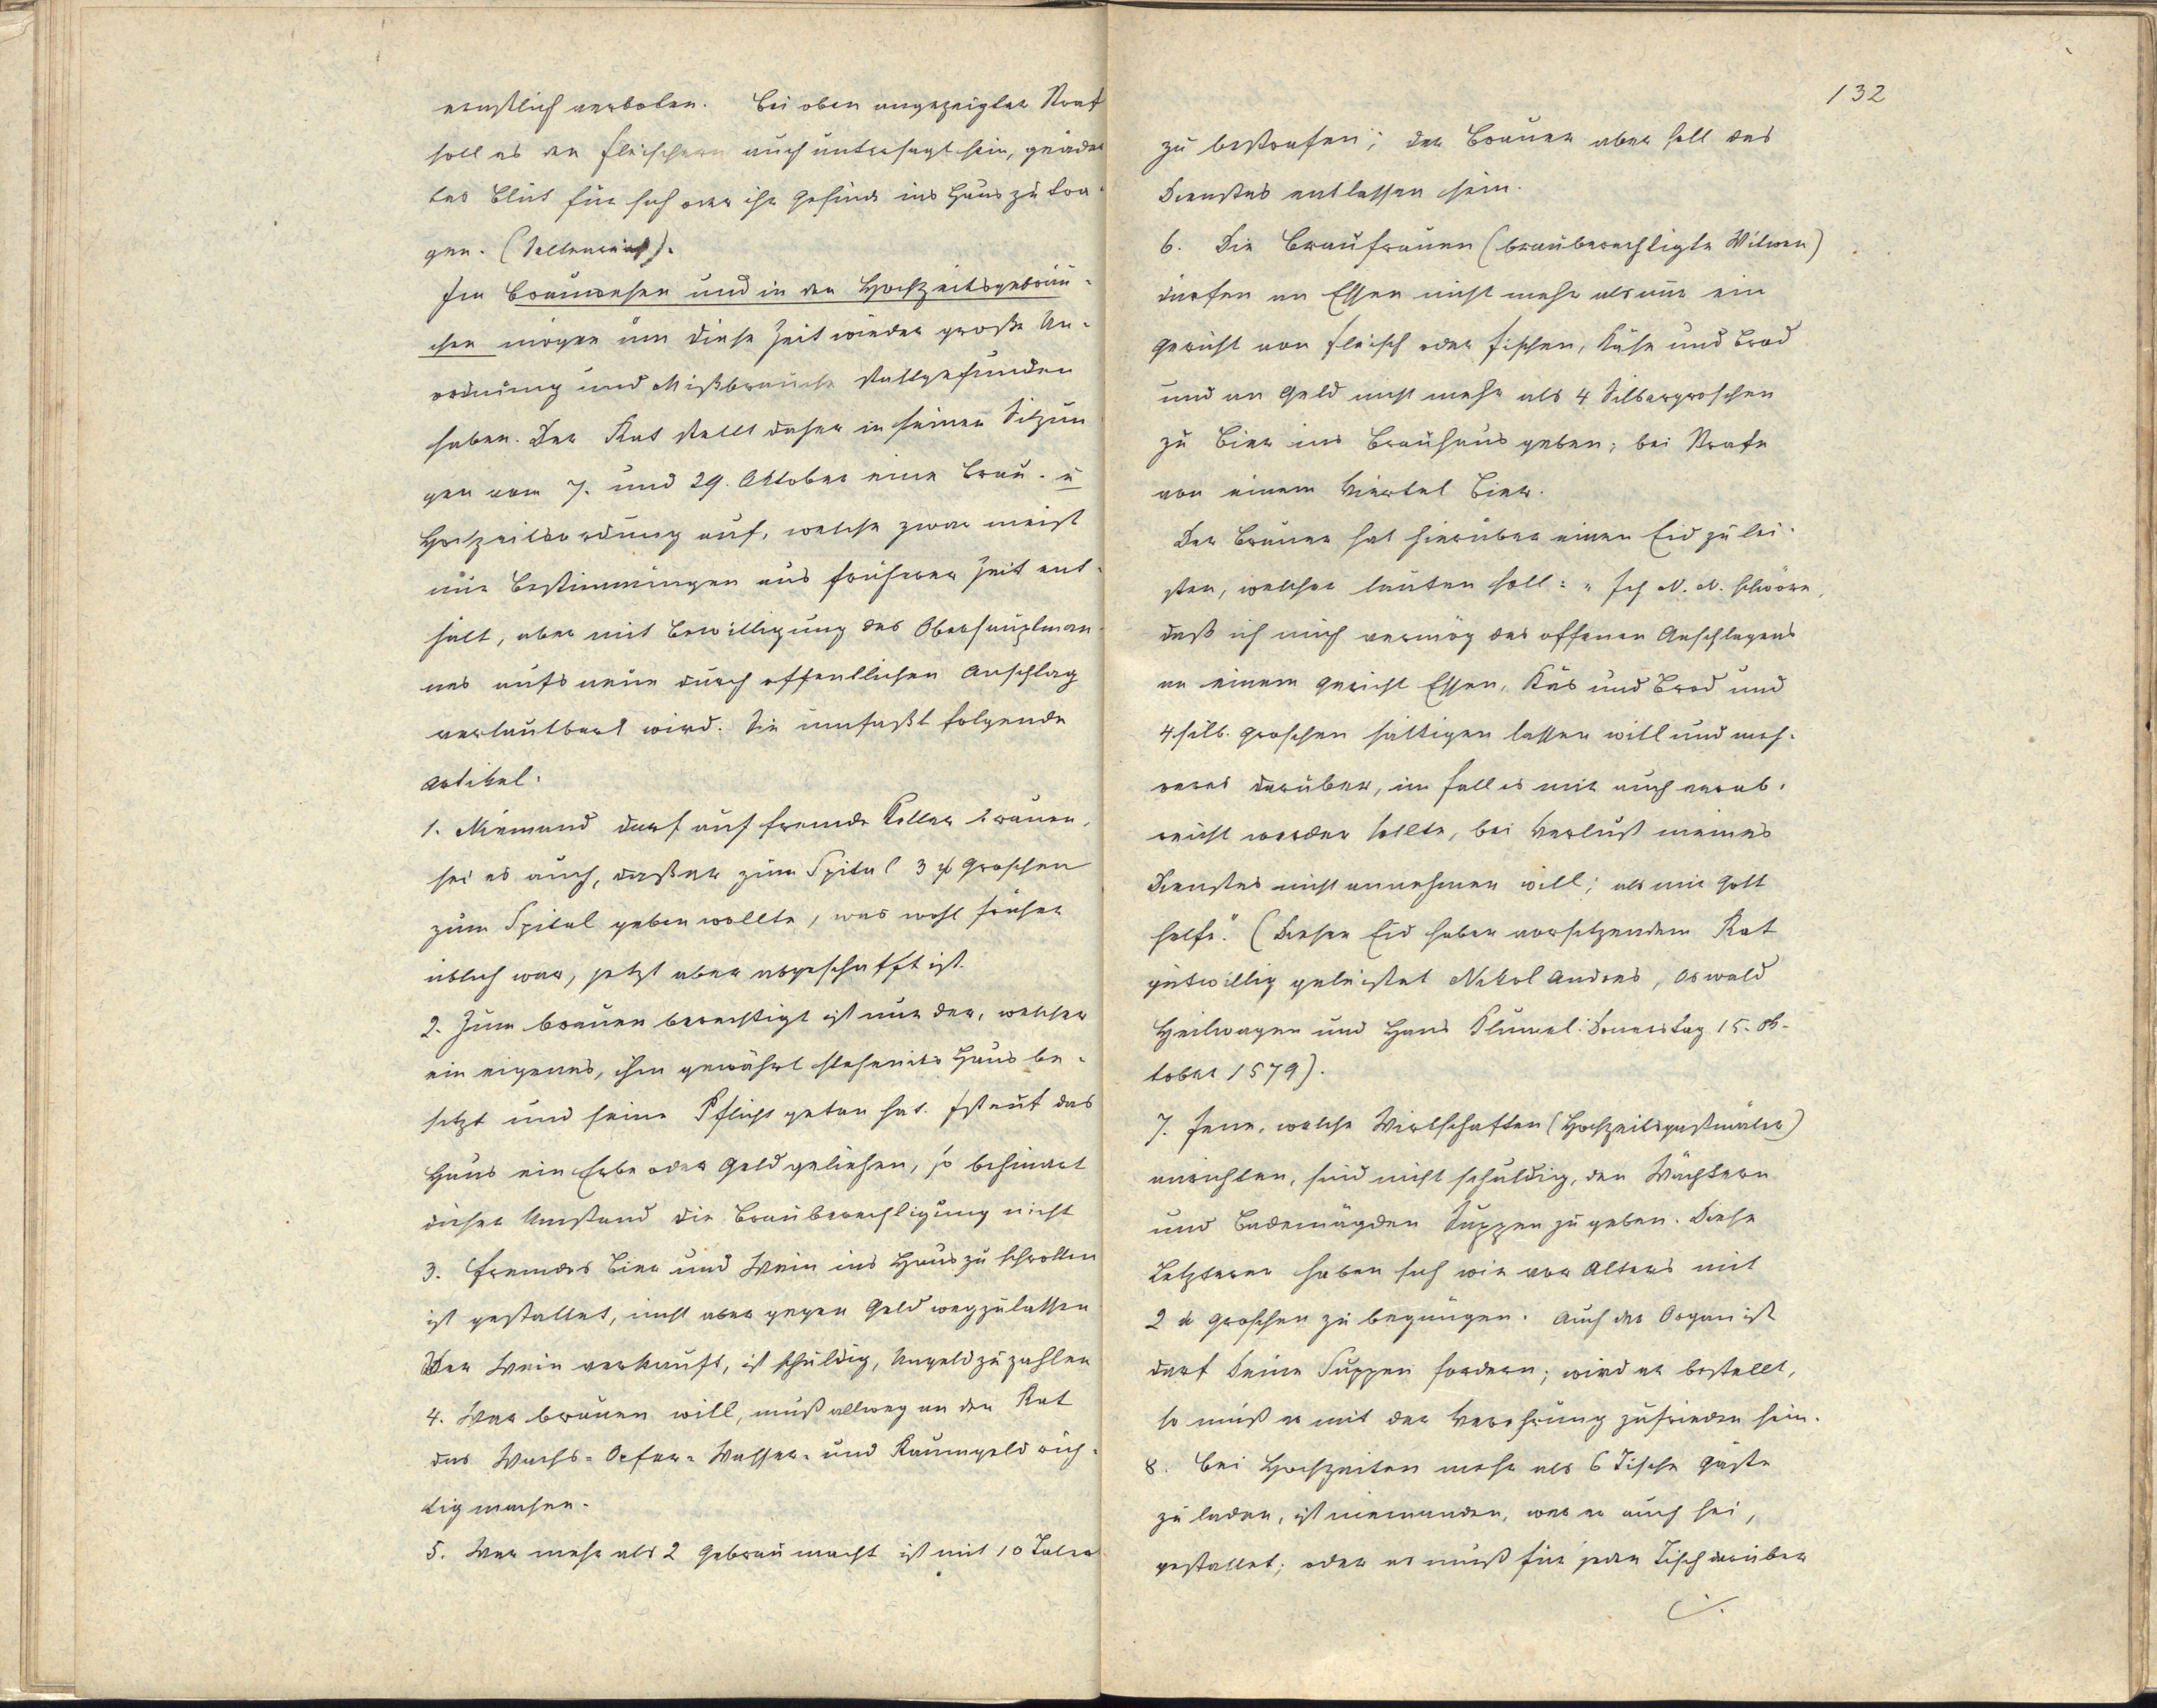 ernstlich verboten. Bei oben angezeigter Straf
soll es den Fleischern auch untersagt sein, geäder
tes Blut für sich oder ihr Gesinde ins Haus zu tra-
gen.
Im Brauwesen und in den Hochzeitsgebräu-
chen mögen um diese Zeit wieder große Un-
ordnung und Mißbräuche stattgefunden
haben. Der Rat stellt daher in seinen Sitzun
gen vom 7. und 29. Oktober eine Brau- u
Hochzeitsordnung auf, welche zwar meist
nur Bestimmungen aus früherer Zeit ent-
hält, aber mit Bewilligung des Oberhauptman-
nes aufs neue durch öffentlichen Anschlag
verlautbart wird. Sie umfaßt folgende
Artikel:
1. Niemand darf auf fremde Keller brauen,
sei es auch, daß er zum Spital 3 Groschen
zum Spital geben wollte, was wohl früher
üblich war, jetzt aber abgeschafft ist.
2. Zum brauen berechtigt ist nur der, welcher
ein eigenes, ihm gewährt stehendes Haus be-
sitzt und seine Pflicht getan hat. Ist auf das
Haus ein Erbe oder Geld geliehen, so behindert
dieser Umstand die Brauberechtigung nicht
3. Fremdes Bier und Wein ins Haus zu schrotten
ist gestattet, nicht aber gegen Geld wegzulassen
Wer Wein verkauft, ist schuldig, Ungeld zu zahlen
4. Wer brauen will, muß allweg an den Rat
das Wachs- Opfer- Wasser- und Raumgeld rich-
tig machen.
5. Wer mehr als 2 Gebräu macht ist mit 10 Taler
132
zu bestrafen; der Brauer aber soll des
Dienstes entlassen sein.
6. Die Braufrauen (brauberechtigte Witwen)
dürfen an Essen nicht mehr als nur ein
Gericht von Fleisch oder Fischen, Käse und Brod
und an Geld nicht mehr als 4 Silbergroschen
zu Bier ins Brauhaus geben; bei Strafe
von einem Viertel Bier.
Der Brauer hat hierüber einen Eid zu lei-
sten, welcher lauten soll: „Ich N. N. schwöre,
daß ich mich vermög des offenen Anschlagens
an einem Gericht Essen, Käs und Brod und
4 silb. Groschen sättigen lassen will und meh-
reres darüber, im Fall es mir auch verab-
reicht werden sollte, bei Verlust meines
Dienstes nicht annehmen will; als mir Gott
helfe." (Diesen Eid haben vorsitzendem Rat
gutwillig geleistet Nikol Andres, Oswald
Heilwagen und Hans Klumel: Donerstag 15. Ok-
tober 1579).
7. Jene, welche Wirtschaften (Hochzeitsgastmäler)
anrichten, sind nicht schuldig, den Wächtern
und Bademägden Suppen zu geben. Diese
Letzteren haben sich wie vor Alters mit
2 Groschen zu begnügen. Auch der Organist
darf keine Suppen fordern; wird er bestellt,
so muß er mit der Verehrung zufrieden sein.
8. Bei Hochzeiten mehr als 6 Tische Gäste
zu laden, ist niemanden, wer er auch sei,
gestattet; oder er muß für jeden Tisch darüber
./.